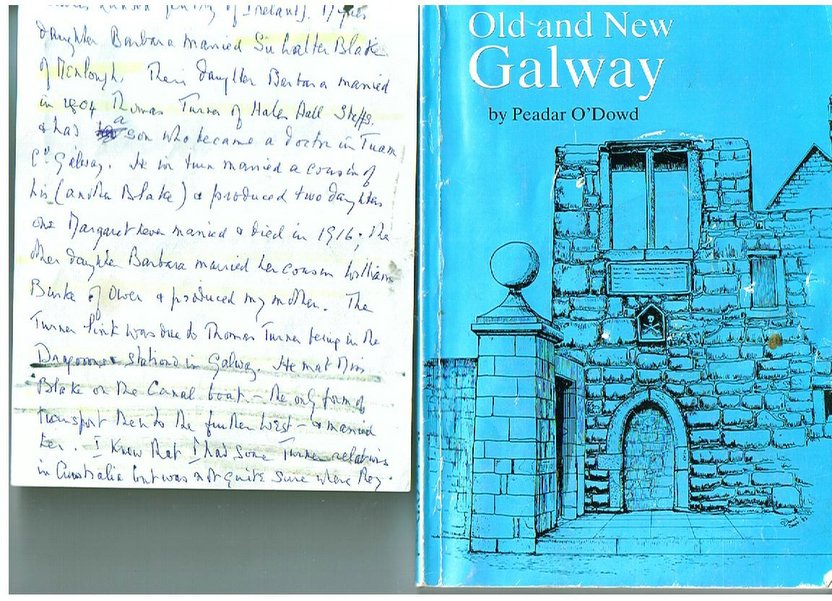 Landed Gentry of Ireland).
daughter Barbara married Sir Walter Blake
of Menlough. Their daughter Barbara married
in 1804 Thomas Turner of Hales Hall Staffs.
& had a son who became a doctor in Tuam
Co Galway. He in turn married a cousin of
his (another Blake) & produced two daughters
one Margaret never married & died in 1916; the
other daughter Barbara married her cousin William
Burke of Ower & produced my mother. The
Turner link was due to Thomas Turner being in the
Dragoons stationed in Galway. He met Miss
Blake on the Canal boat – the only form of
transport then to the further West – & married
her. I know that I had some Turner relations
in Australia but was not quite sure where they.
Old and New
Galway
by Peadar O'Dowd